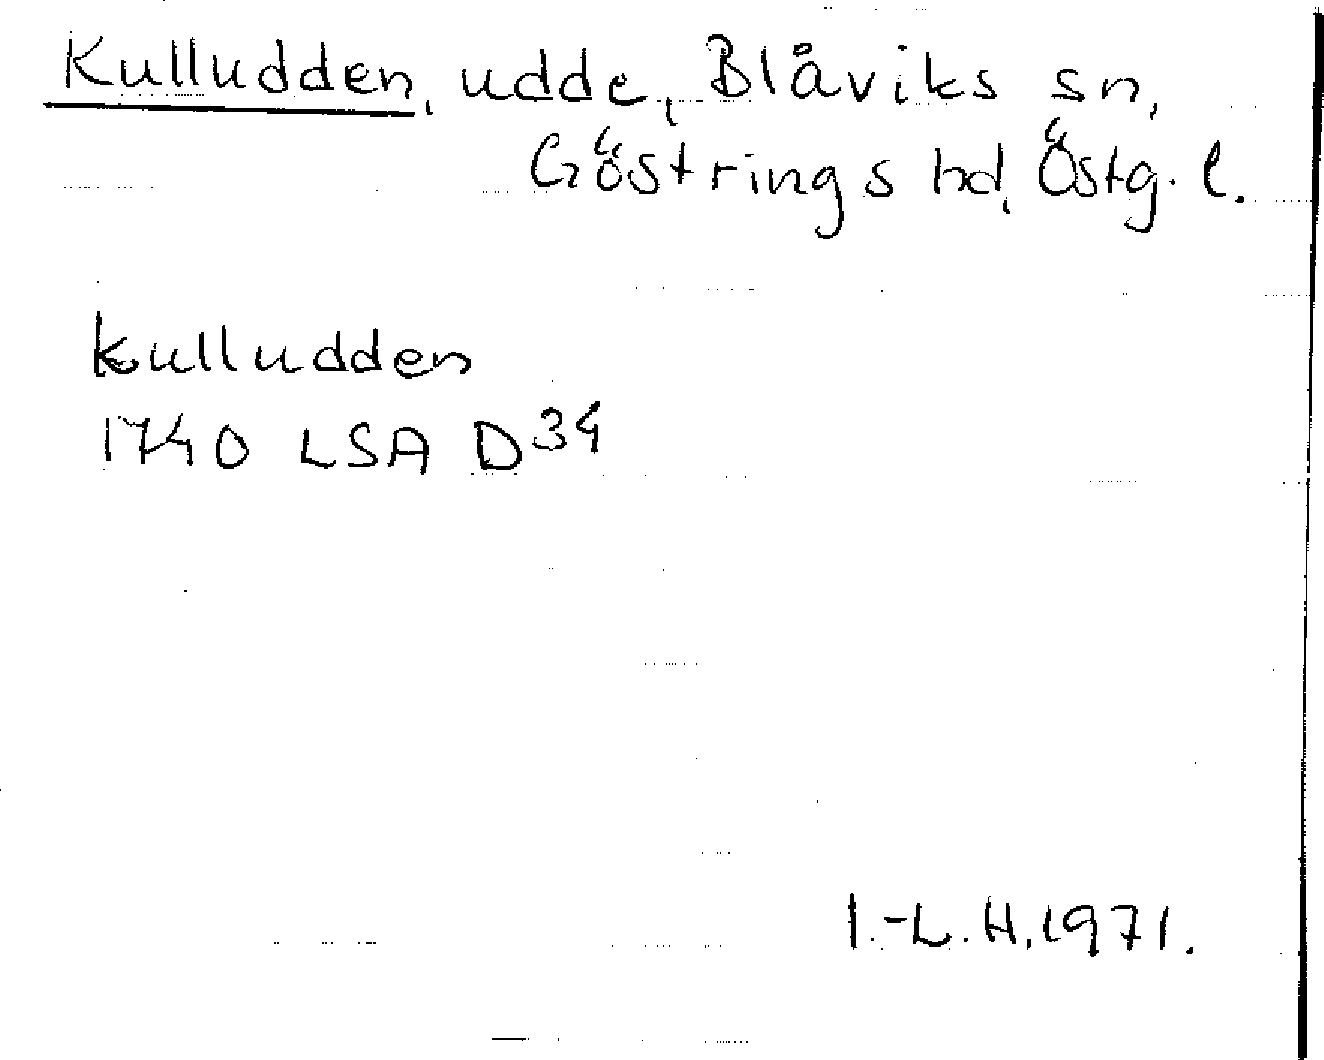 Kulludden, udde, Blåviks sn,
Göstrings hd, Östg. l.
Kulludden
1740 LSA D34
I.-L. H. 1971.